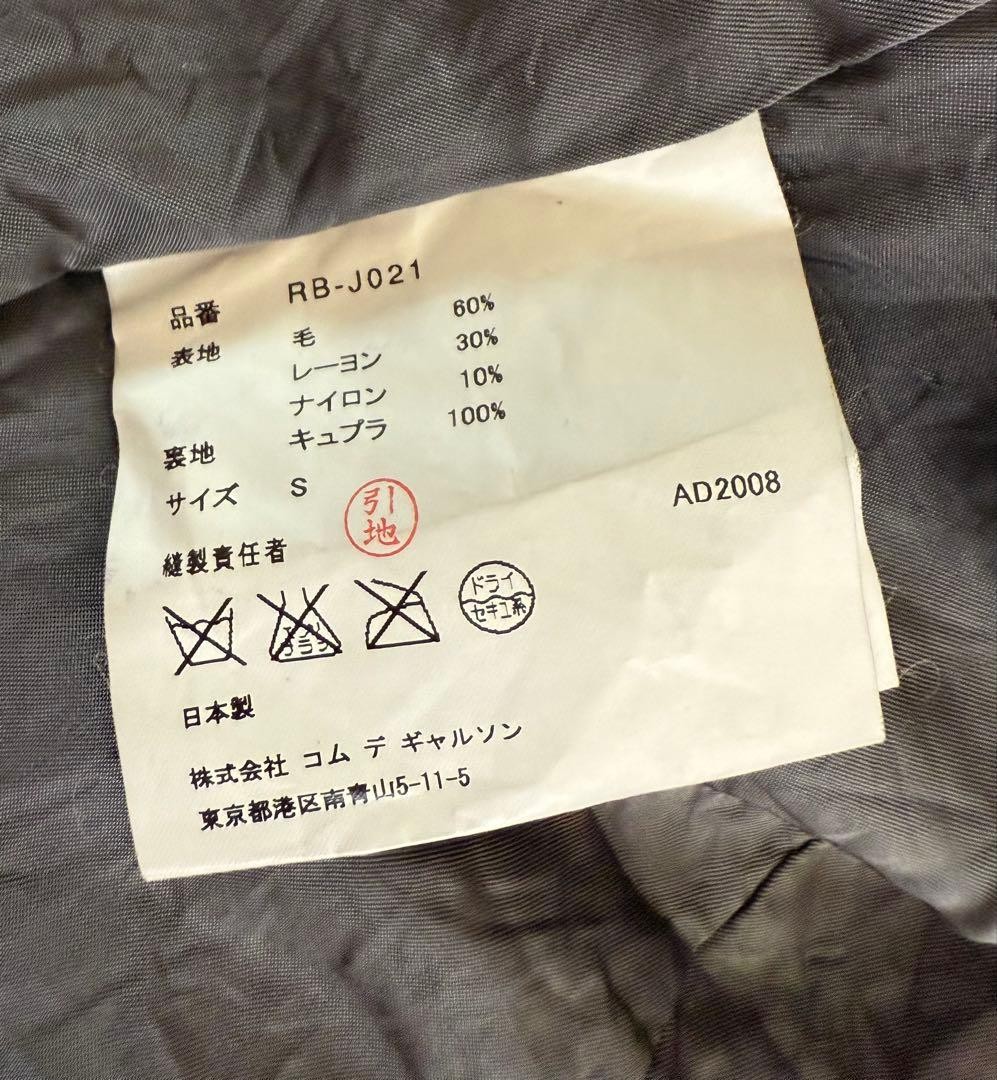 品番 RB-J021
表地 毛 60%
レーヨン 30%
ナイロン 10%
裏地 キュプラ 100%
サイズ S
引地
AD2008
縫製責任者
エンソ
サラシ
ドライ
セキユ系
日本製
株式会社 コム デ ギャルソン
東京都港区南青山5-11-5